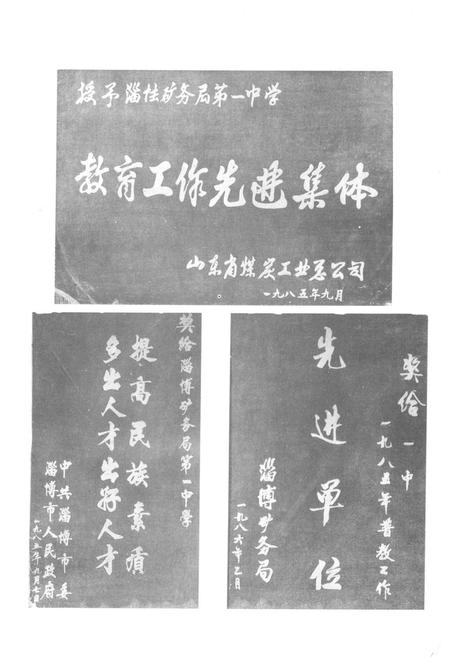 授予淄博矿务局第一中学
教育工作先进集体
山东省煤炭工业总公司
一九八五年九月
奖给淄博矿务局第一中学
提高民族素质
多出人才出好人才
中共淄博市委
淄博市人民政府
一九八五年九月七日
奖给一中
一九八五年普教工作
先进单位
淄博矿务局
一九八六年二月